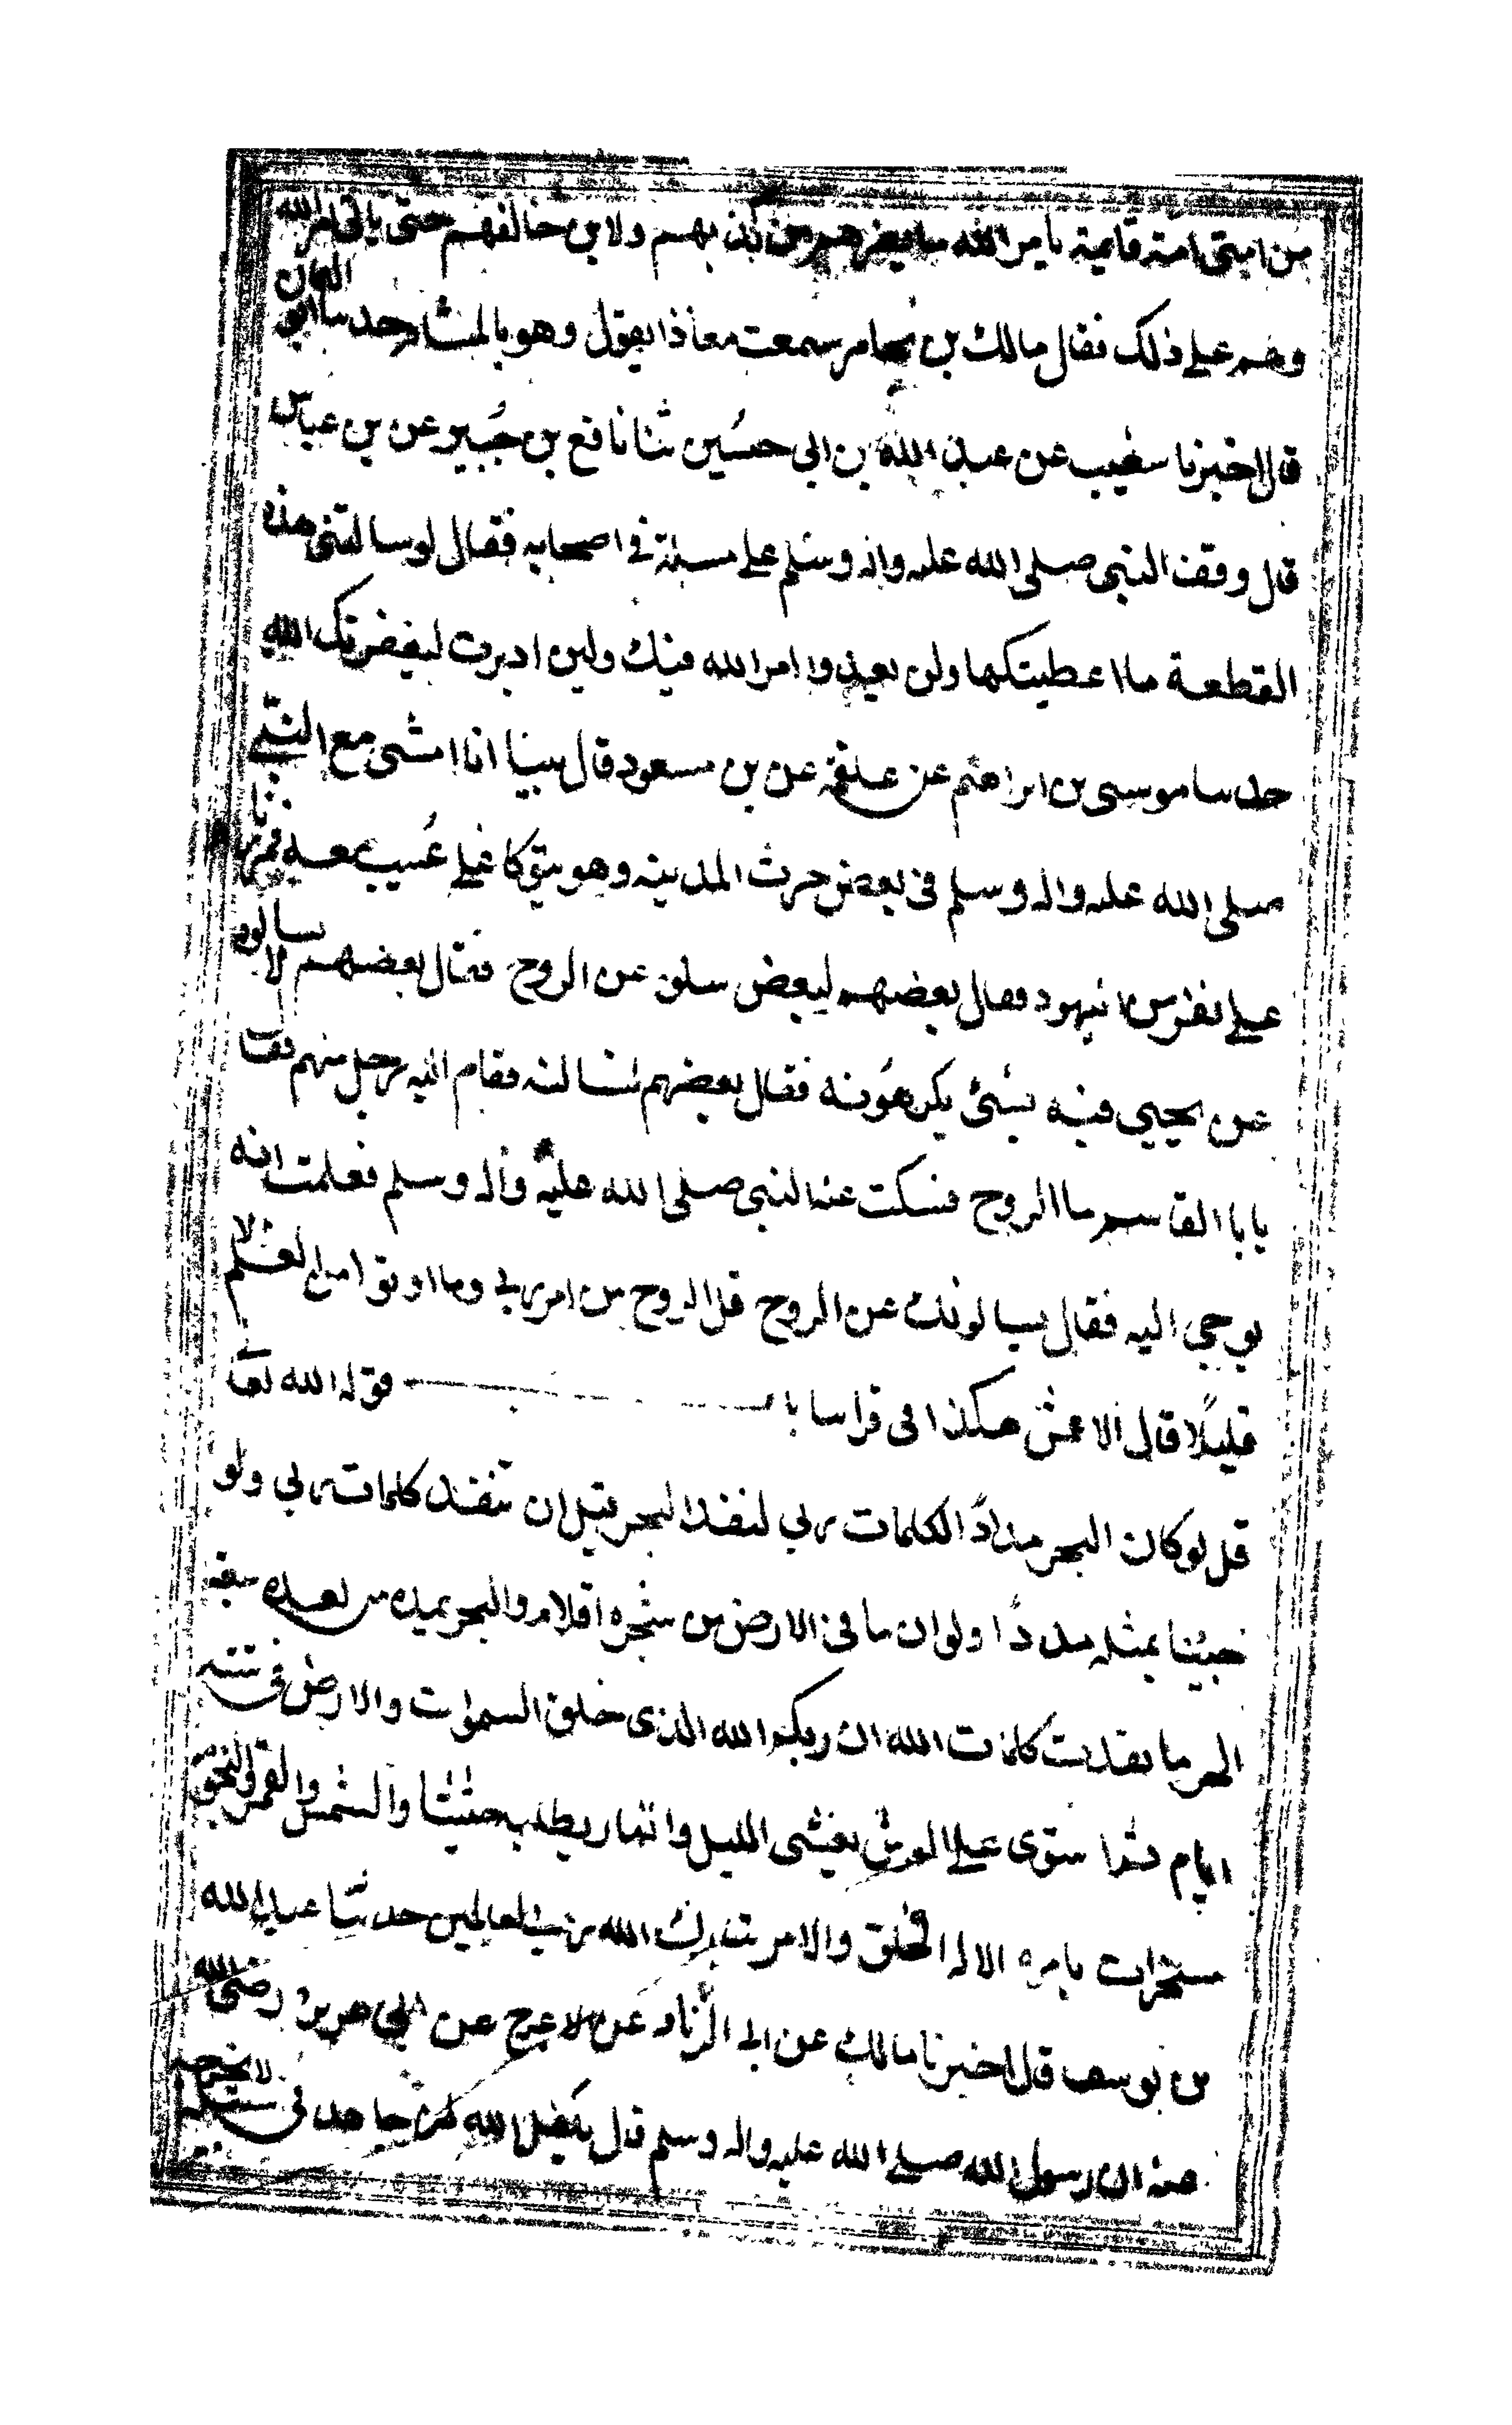 من امتي امة قايمة بامر الله ما يضرهم من كذبهم ولا من خالفهم حتى ياتي امر الله
وهم على ذلك فقال مالك بن يخامر سمعت معاذا يقول وهو بالشام حدسا ابو اليمان
قال اخبرنا شعيب عن عبد الله بن ابي حسين ثنا نافع بن جبير عن بن عباس
قال وقف النبي صلى الله عليه واله وسلم على مسيلمة في اصحابه فقال لو سالتني هذه
القطعة ما اعطيتكها ولن تعدوا امر الله فيك ولين ادبرت ليعقرنك الله
حدسا موسى بن ابراهيم عن علقمة عن بن مسعود قال بينا انا امشي مع النبي
صلى الله عليه واله وسلم في بعض حرث المدينه وهو يتوكا على عسيب معه فمرنا
على نفر من اليهود فقال بعضهم لبعض سلوه عن الروح فقال بعضهم لا تسالوه
عن يحيي فيه بشئ يكرهونه فقال بعضهم لنسالنه فقام اليه رجل منهم فقال
يابا القاسم ما الروح فسكت عنه النبي صلى الله عليه واله وسلم فعلمت انه
يوحى اليه فقال يسالونك عن الروح قل الروح من امر ربي وما اوتوا من العلم الا
قليلا قال الاعمش هكذا في قراسا باب قوله الله تعا
قل لو كان البحر مدادًا لكلمات ربي لنفد البحر قبل ان تنفد كلمات ربي ولو
جيئنا بمثله مددًا ولو ان ما في الارض من شجره اقلام والبحر يمده من بعده سبعه
ابحر ما نفدت كلمات الله ان ربكم الله الذى خلق السموات والارض في ستة
ايام ثم استوى على العرش يغشى الليل والنهار يطلبه حثيثا والشمس والقمر والنجوم
مسخرات بامره الا له الخلق والامر تبارك الله رب العالمين حدثنا عبد الله
بن يوسف قال اخبرنا مالك عن ابي الزناد عن الاعرج عن ابي هريرة رضي الله
عنه ان رسول الله صلى الله عليه واله وسلم قال تكفل الله لمن جاهد في سبيله لا يخرجه